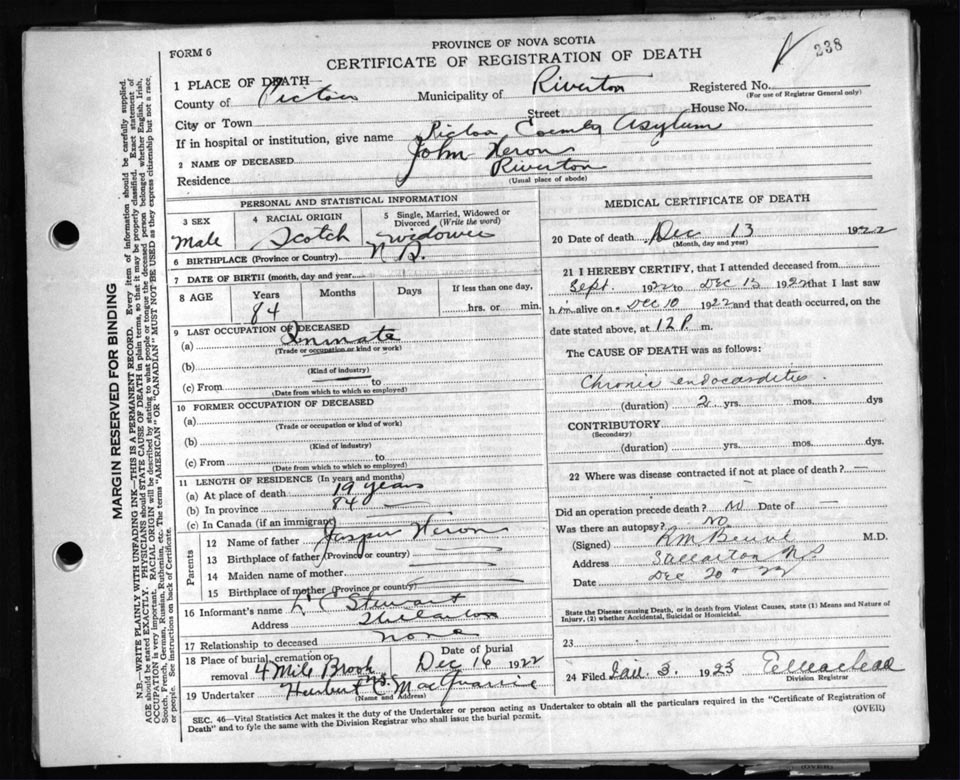 238
PROVINCE OF NOVA SCOTIA
FORM 6
CERTIFICATE OF REGISTRATION OF DEATH
1 PLACE OF DEATH
County of Pictou Municipality of Riverton Registered No.
(For use of Registrar General only)
City or Town Street House No.
If in hospital or institution, give name Pictou County Asylum
2 NAME OF DECEASED John Heron
Residence Riverton
(Usual place of abode)
PERSONAL AND STATISTICAL INFORMATION
3 SEX 4 RACIAL ORIGIN 5 Single, Married, Widowed or Divorced (Write the word)
Male Scotch Widower
6 BIRTHPLACE (Province or Country) N.S.
7 DATE OF BIRTH (month, day and year)
8 AGE Years Months Days If less than one day,
84 hrs. or min.
9 LAST OCCUPATION OF DECEASED
(a) Inmate
(Trade or occupation or kind or work)
(b)
(Kind of industry)
(c) From to
(Date from which to which so employed)
10 FORMER OCCUPATION OF DECEASED
(a)
(Trade or occupation or kind of work)
(b)
(Kind of industry)
(c) From to
(Date from which to which so employed)
11 LENGTH OF RESIDENCE (In years and months)
(a) At place of death 19 years
(b) In province 84 —
(c) In Canada (if an immigrant)
Parents
12 Name of father Jasper Heron
13 Birthplace of father (Province or country)
14 Maiden name of mother
15 Birthplace of mother (Province or country)
16 Informant's name Stewart
Address Stellarton
17 Relationship to deceased None
18 Place of burial, cremation or removal 4 Mile Brook N.S.
Date of burial Dec 16 1922
19 Undertaker Herbert C MacQuarrie
(Name and Address)
MEDICAL CERTIFICATE OF DEATH
20 Date of death Dec 13 1922
(Month, day and year)
21 I HEREBY CERTIFY, that I attended deceased from
Sept. 1922 to Dec 13 1922 that I last saw
him alive on Dec 10 1922 and that death occurred, on the
date stated above, at 12 P. m.
The CAUSE OF DEATH was as follows:
Chronic endocarditis
(duration) 2 yrs. mos. dys
CONTRIBUTORY
(Secondary)
(duration) yrs. mos. dys.
22 Where was disease contracted if not at place of death? —
Did an operation precede death? No Date of —
Was there an autopsy? No
(Signed) M.D.
Address Stellarton N.S.
Date Dec 20 22
State the Disease causing Death, or in death from Violent Causes, state (1) Means and Nature of
Injury, (2) whether Accidental, Suicidal or Homicidal.
23
24 Filed Jan. 3. 1923
Division Registrar
SEC. 46—Vital Statistics Act makes it the duty of the Undertaker or person acting as Undertaker to obtain all the particulars required in the "Certificate of Registration of
Death" and to fyle the same with the Division Registrar who shall issue the burial permit.
(OVER)
MARGIN RESERVED FOR BINDING
N.B.—WRITE PLAINLY WITH UNFADING INK—THIS IS A PERMANENT RECORD. Every item of information should be carefully supplied.
AGE should be stated EXACTLY. PHYSICIANS should STATE CAUSE OF DEATH in plain terms, so that it may be properly classified. Exact statement of
OCCUPATION is very important. RACIAL ORIGIN will be described by stating to what people or tongue the deceased person belonged whether English, Irish,
Scotch, French, German, Russian, Ruthenian, etc. The terms "AMERICAN" OR "CANADIAN" MUST NOT BE USED as they express citizenship but not a race,
or people. See instructions on back of Certificate.